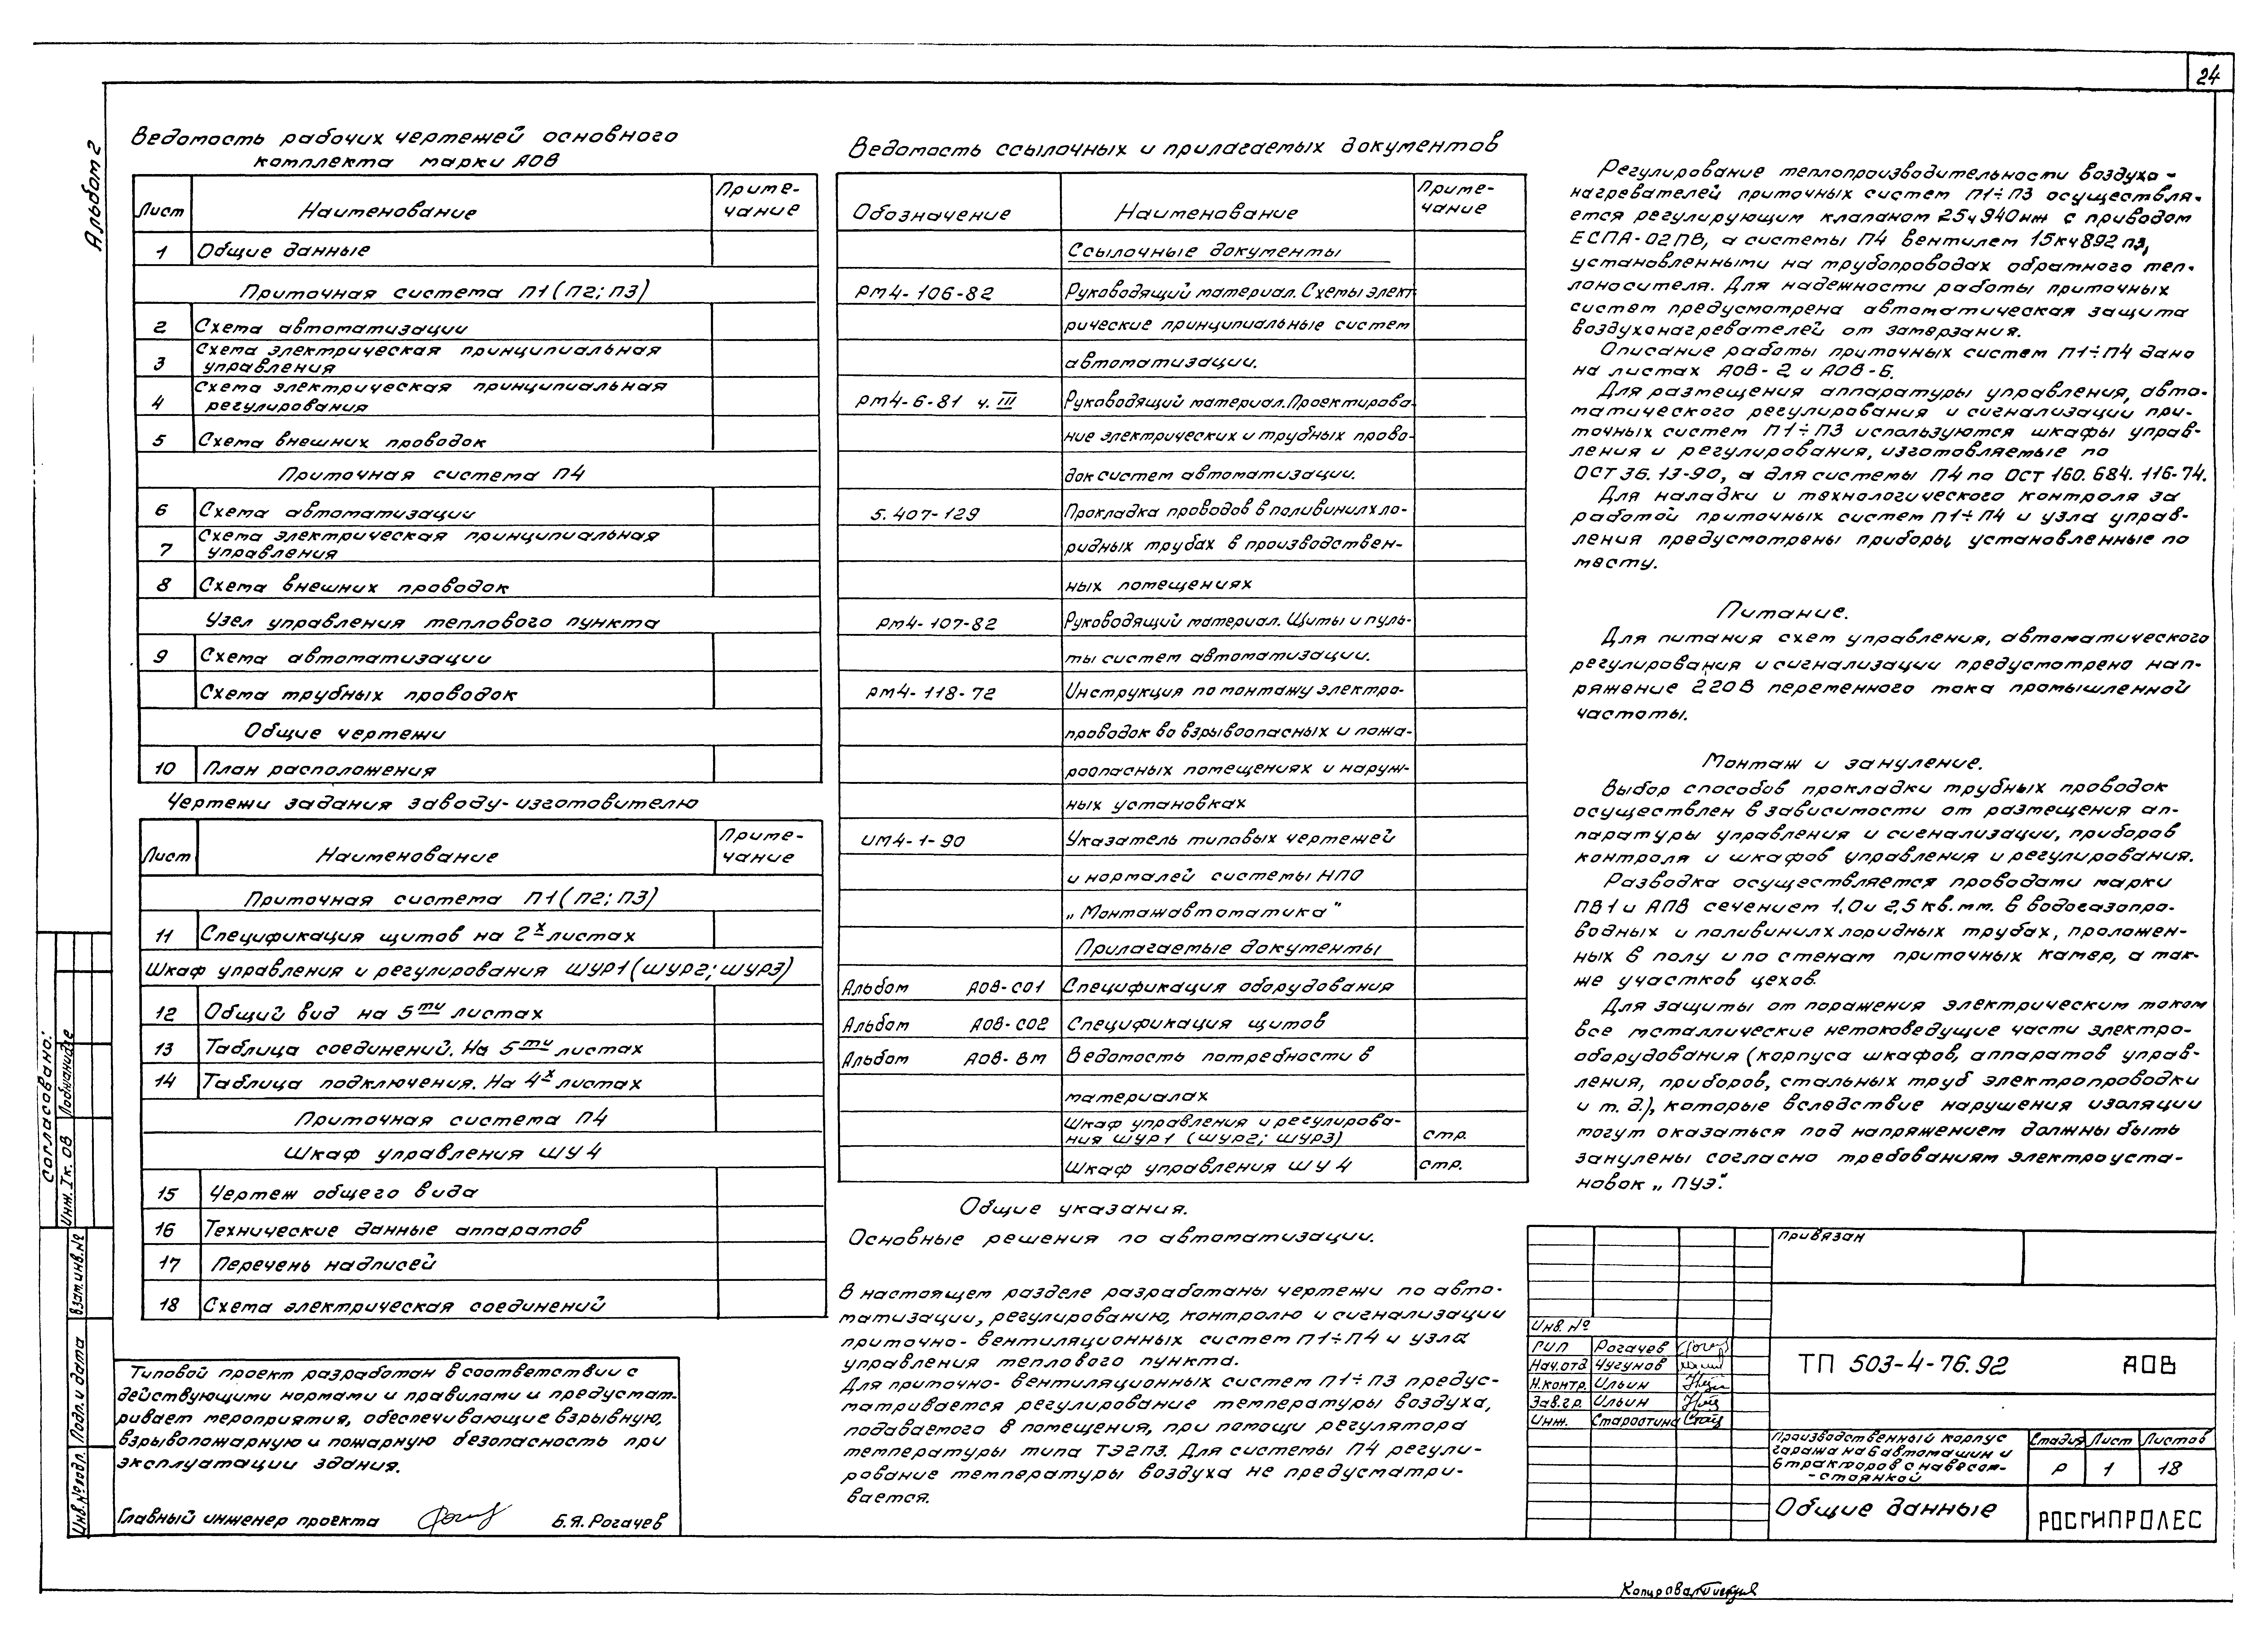 24
Альбом 2
Ведомость рабочих чертежей основного
комплекта марки АОВ
Лист Наименование Приме-
чание
1 Общие данные
Приточная система П1 (П2; П3)
2 Схема автоматизации
3 Схема электрическая принципиальная
управления
4 Схема электрическая принципиальная
регулирования
5 Схема внешних проводок
Приточная система П4
6 Схема автоматизации
7 Схема электрическая принципиальная
управления
8 Схема внешних проводок
Узел управления теплового пункта
9 Схема автоматизации
Схема трубных проводок
Общие чертежи
10 План расположения
Чертежи задания заводу-изготовителю
Лист Наименование Приме-
чание
Приточная система П1 (П2; П3)
11 Спецификация щитов на 2х листах
Шкаф управления и регулирования ШУР1 (ШУР2; ШУР3)
12 Общий вид на 5ти листах
13 Таблица соединений. На 5ти листах
14 Таблица подключения. На 4х листах
Приточная система П4
Шкаф управления ШУ4
15 Чертеж общего вида
16 Технические данные аппаратов
17 Перечень надписей
18 Схема электрическая соединений
Типовой проект разработан в соответствии с
действующими нормами и правилами и предусмат-
ривает мероприятия, обеспечивающие взрывную,
взрывопожарную и пожарную безопасность при
эксплуатации здания.
Главный инженер проекта Б.Я. Рогачев
Ведомость ссылочных и прилагаемых документов
Обозначение Наименование Приме-
чание
Ссылочные документы
РМ4-106-82 Руководящий материал. Схемы элект-
рические принципиальные систем
автоматизации.
РМ4-6-81 ч. III Руководящий материал. Проектирова-
ние электрических и трубных прово-
док систем автоматизации.
5.407-129 Прокладка проводов в поливинилхло-
ридных трубах в производствен-
ных помещениях
РМ4-107-82 Руководящий материал. Щиты и пуль-
ты систем автоматизации.
РМ4-118-72 Инструкция по монтажу электро-
проводок во взрывоопасных и пожа-
роопасных помещениях и наруж-
ных установках
ИМ4-1-90 Указатель типовых чертежей
и нормалей системы НПО
„Монтажавтоматика"
Прилагаемые документы
Альбом АОВ-СО1 Спецификация оборудования
Альбом АОВ-СО2 Спецификация щитов
Альбом АОВ-ВМ Ведомость потребности в
материалах
Шкаф управления и регулирова-
ния ШУР1 (ШУР2; ШУР3) стр.
Шкаф управления ШУ4 стр.
Общие указания.
Основные решения по автоматизации.
В настоящем разделе разработаны чертежи по авто-
матизации, регулированию, контролю и сигнализации
приточно-вентиляционных систем П1÷П4 и узла
управления теплового пункта.
Для приточно-вентиляционных систем П1÷П3 предус-
матривается регулирование температуры воздуха,
подаваемого в помещения, при помощи регулятора
температуры типа ТЭ2П3. Для системы П4 регули-
рование температуры воздуха не предусматри-
вается.
Регулирование теплопроизводительности воздухо-
нагревателей приточных систем П1÷П3 осуществля-
ется регулирующим клапаном 25ч940нж с приводом
ЕСПА-02ПВ, а системы П4 вентилем 15кч892п3,
установленными на трубопроводах обратного теп-
лоносителя. Для надежности работы приточных
систем предусмотрена автоматическая защита
воздухонагревателей от замерзания.
Описание работы приточных систем П1÷П4 дано
на листах АОВ-2 и АОВ-6.
Для размещения аппаратуры управления, авто-
матического регулирования и сигнализации при-
точных систем П1÷П3 используются шкафы управ-
ления и регулирования, изготовляемые по
ОСТ 36.13-90, а для системы П4 по ОСТ 160.684.116-74.
Для наладки и технологического контроля за
работой приточных систем П1÷П4 и узла управ-
ления предусмотрены приборы, установленные по
месту.
Питание.
Для питания схем управления, автоматического
регулирования и сигнализации предусмотрено нап-
ряжение 220В переменного тока промышленной
частоты.
Монтаж и зануление.
Выбор способов прокладки трубных проводок
осуществлен в зависимости от размещения ап-
паратуры управления и сигнализации, приборов
контроля и шкафов управления и регулирования.
Разводка осуществляется проводами марки
ПВ1 и АПВ сечением 1,0 и 2,5 кв. мм. в водогазопро-
водных и поливинилхлоридных трубах, проложен-
ных в полу и по стенам приточных камер, а так-
же участков цехов.
Для защиты от поражения электрическим током
все металлические нетоковедущие части электро-
оборудования (корпуса шкафов, аппаратов управ-
ления, приборов, стальных труб электропроводки
и т.д.), которые вследствие нарушения изоляции
могут оказаться под напряжением должны быть
занулены согласно требованиям электроуста-
новок „ПУЭ".
Привязан
Инв. №
ГИП Рогачев
Нач.отд Чугунов
Н.контр. Ильин
Зав.гр. Ильин
Инж. Старостина
ТП 503-4-76.92 АОВ
Производственный корпус
гаража на 6 автомашин и
6 тракторов с навесом-
-стоянкой
Стадия Лист Листов
Р 1 18
Общие данные
РОСГИПРОЛЕС
Согласовано:
Инж. Iк. ОВ
Взам.инв.№
Подп. и дата
Инв.№подл.
Копировал